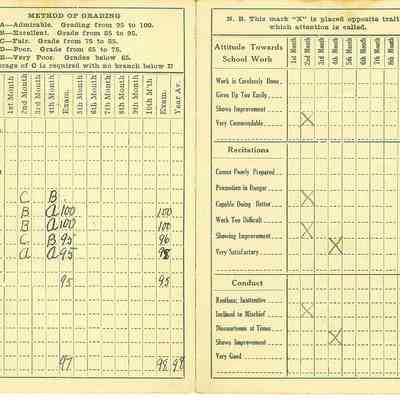 METHOD OF GRADING
A—Admirable. Grading from 95 to 100.
B—Excellent. Grade from 85 to 95.
C—Fair. Grade from 75 to 85.
D—Poor. Grade from 65 to 75.
E—Very Poor. Grades below 65.
erage of C is required with no branch below D
1st Month 2nd Month 3rd Month 4th Month Exam. 5th Month 6th Month 7th Month 8th Month 9th Month 10th M'th Exam. Year Av.
C B
B A 100 100
B A 100 100
C B 95 96
A A 95 98
95 95
97 98 98
N. B. This mark "X" is placed opposite trait
which attention is called.
Attitude Towards
School Work
1st Month 2nd Month 3rd Month 4th Month 5th Month 6th Month 7th Month 8th Month
Work is Carelessly Done
Gives Up Too Easily
Shows Improvement
Very Commendable X
Recitations
Comes Poorly Prepared
Promotion in Danger
Capable Doing Better X
Work Too Difficult
Showing Improvement X
Very Satisfactory X
Conduct
Restless; Inattentive
Inclined to Mischief X
Discourteous at Times
Shows Improvement X
Very Good